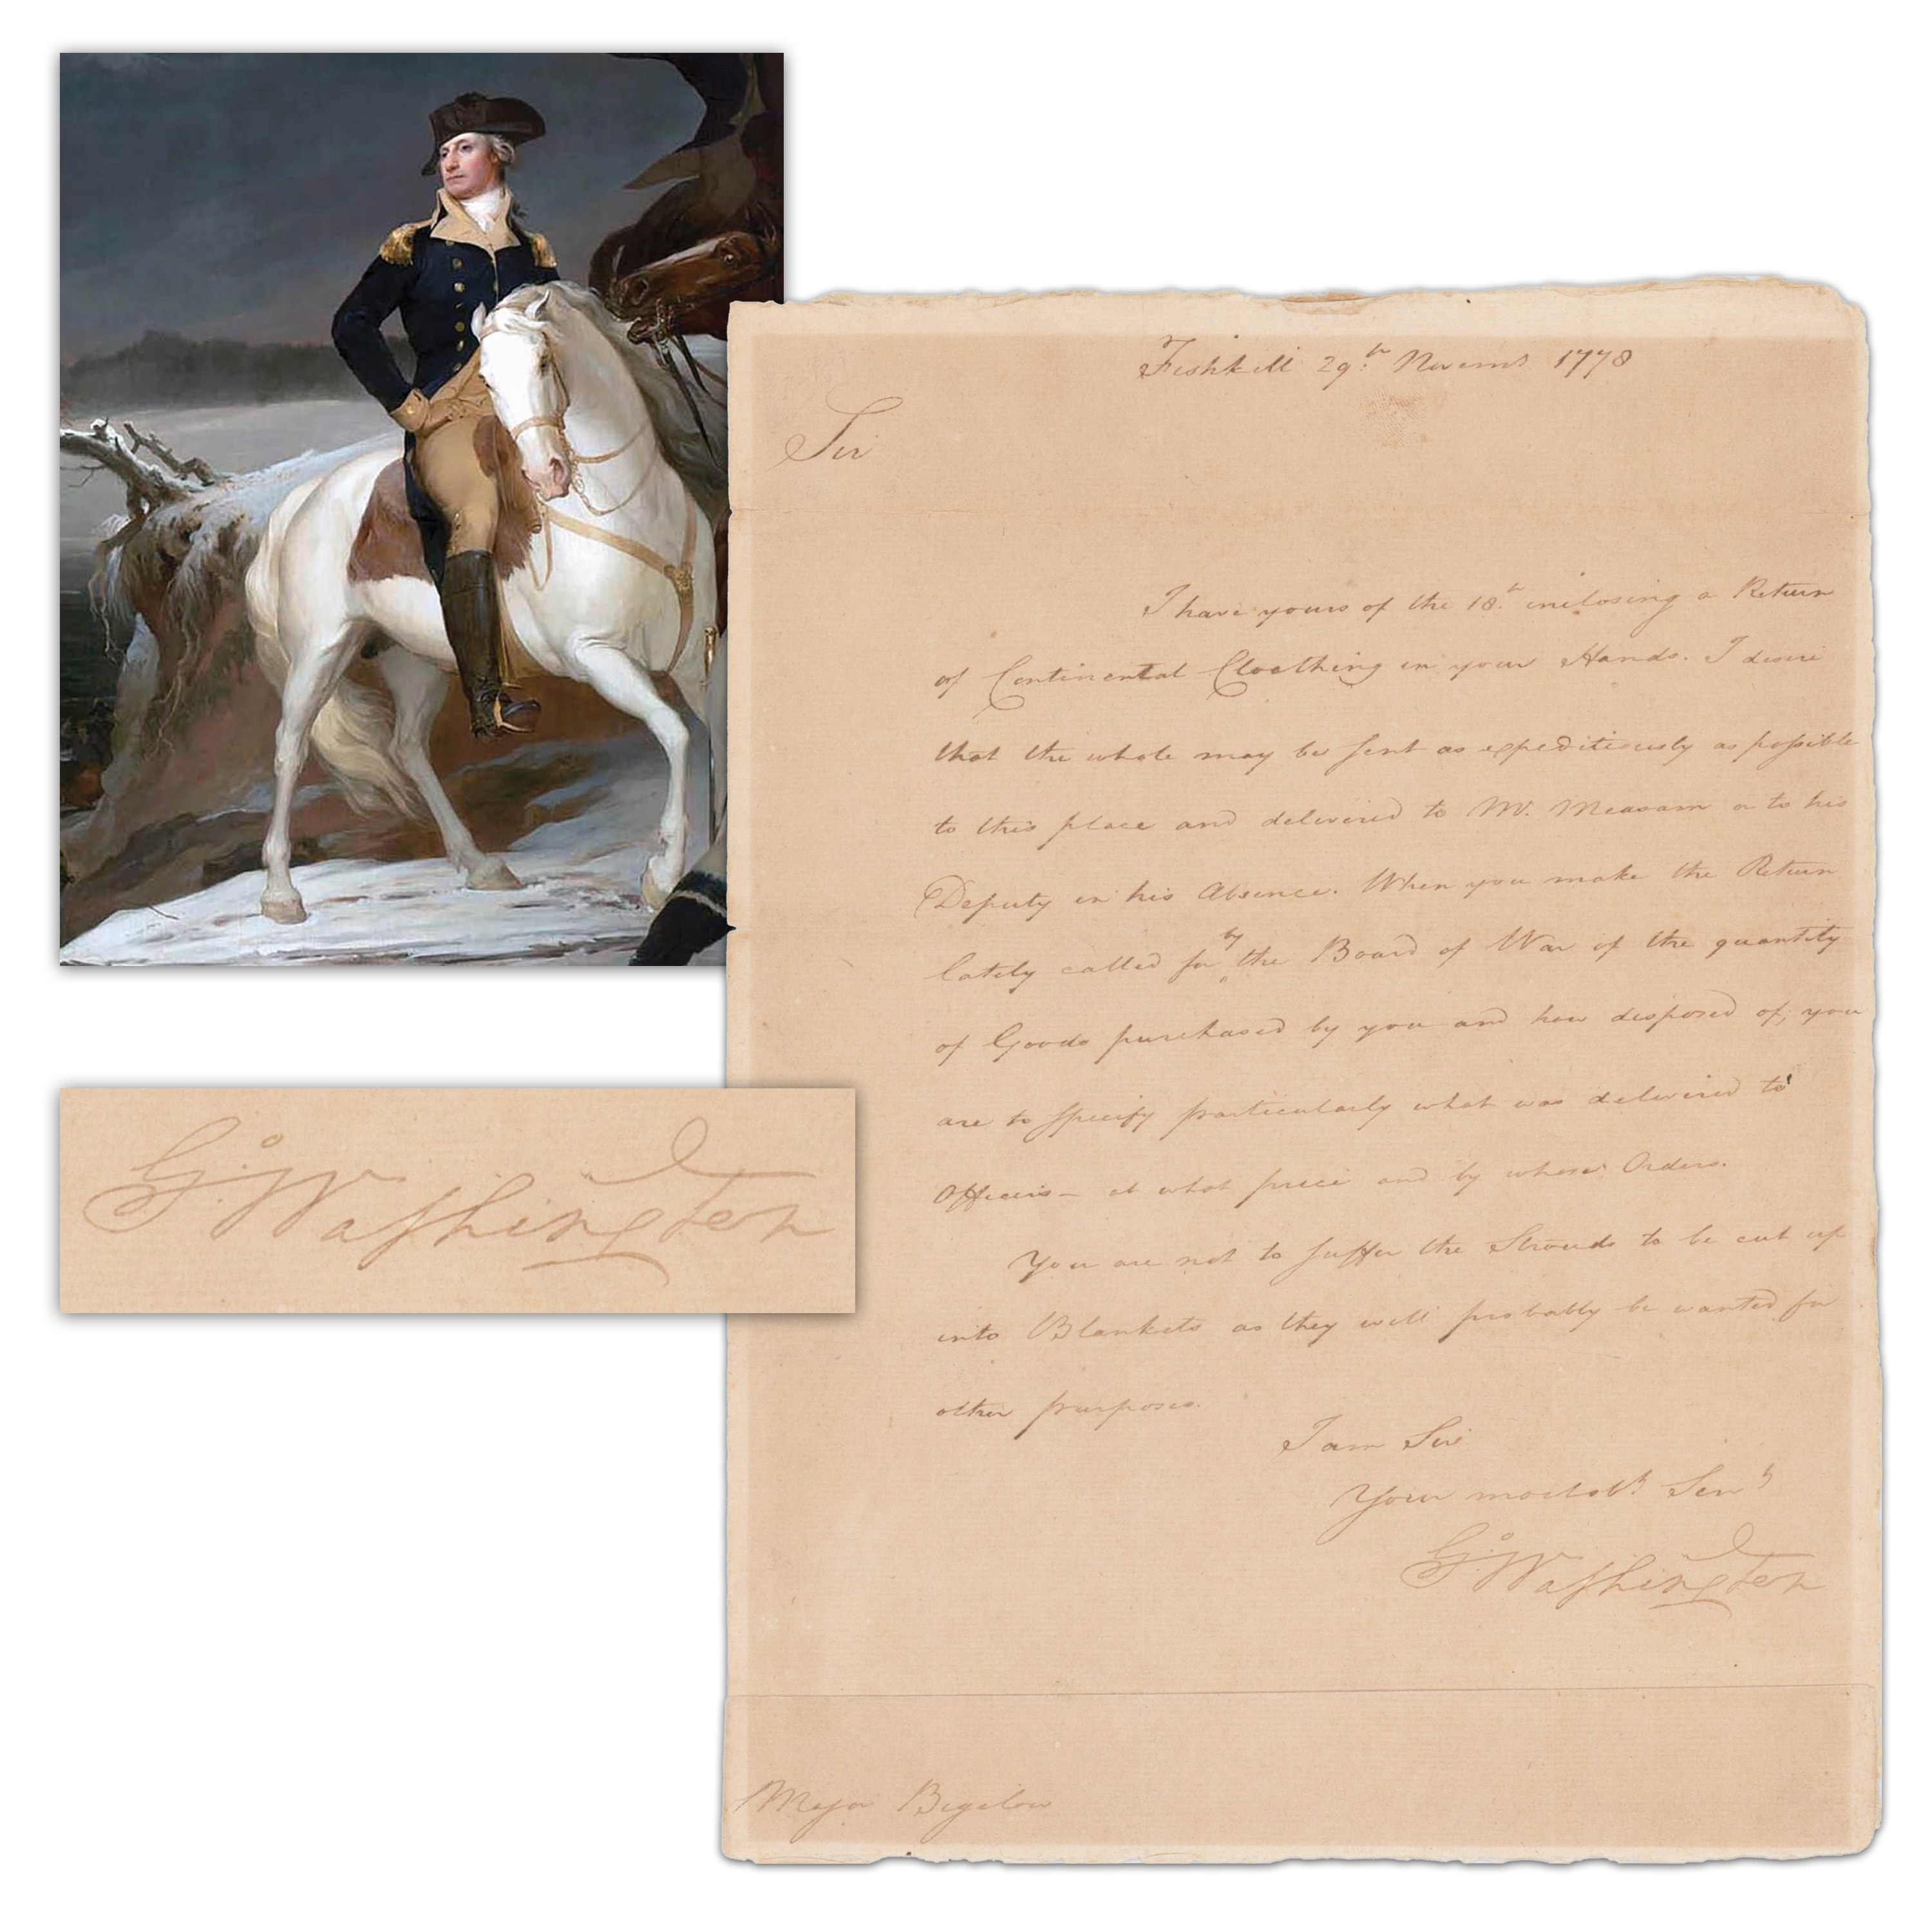 Fishkill 29th. Novemb 1778
Sir
I have yours of the 18th. inclosing a Return
of Continental Cloathing in your Hands. I desire
that the whole may be sent as expeditiously as possible
to this place and delivered to Mr. Measam or to his
Deputy in his Absence. When you make the Return
lately called for by the Board of War of the quantity
of Goods purchased by you and how disposed of, you
are to specify particularly what was delivered to
Officers - at what price and by whose Orders.
You are not to suffer the Strouds to be cut up
into Blankets as they will probably be wanted for
other purposes.
I am Sir
Your most obt. Servt
Go: Washington
Major Bigelow
Go: Washington